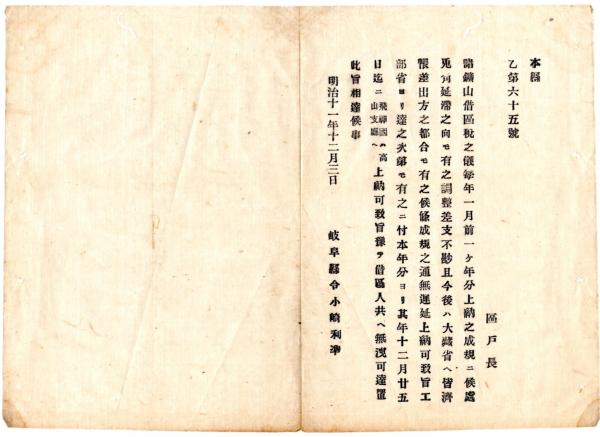 本縣
乙第六十五號
區戸長
諸鑛山借區税之儀毎年一月前一ヶ年分上納之成規ニ候處
兎角延滯之向モ有之調整差支不尠且今後ハ大藏省ヘ皆濟
帳差出方之都合モ有之候條成規之通無遲延上納可致旨工
部省ヨリ達之次第モ有之ニ付本年分ヨリ其年十二月廿五
日迄ニ飛彈國ハ高山支廳ヘ上納可致旨豫テ借區人共ヘ無洩可達置
此旨相達候事
明治十一年十二月三日
岐阜縣令小崎利準